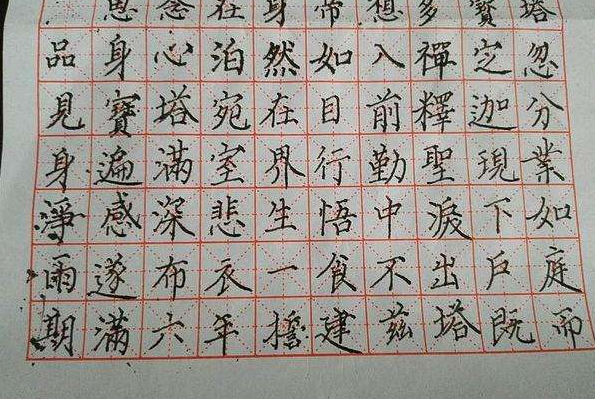 思念在身常想多寶塔
品身心泊然如入禪定忽
見寶塔宛在目前釋迦分
身遍滿室界行勤聖現業
淨感深悲生悟中淚下如
雨遂布衣一食不出戶庭
期滿六年誓建茲塔既而